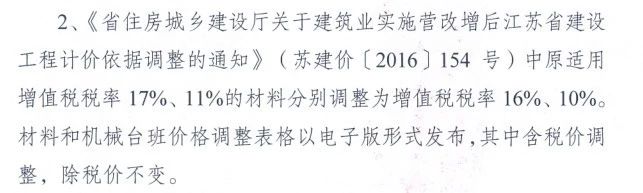 2、《省住房城乡建设厅关于建筑业实施营改增后江苏省建设
工程计价依据调整的通知》（苏建价〔2016〕154 号）中原适用
增值税税率 17%、11%的材料分别调整为增值税税率 16%、10%。
材料和机械台班价格调整表格以电子版形式发布,其中含税价调
整，除税价不变。